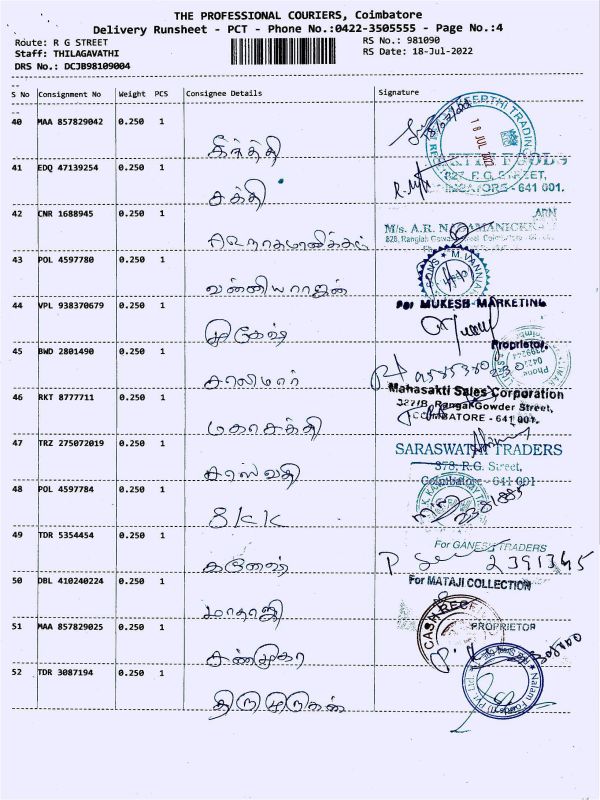 THE PROFESSIONAL COURIERS, Coimbatore
Delivery Runsheet - PCT - Phone No.:0422-3505555 - Page No.:4
Route: R G STREET
Staff: THILAGAVATHI
DRS No.: DCJB98109004
RS No.: 981090
RS Date: 18-Jul-2022
S No Consignment No Weight PCS Consignee Details Signature
40 MAA 857829042 0.250 1
கீர்த்தி
KEERTHI TRADING
18 JUL 2022
41 EDQ 47139254 0.250 1
சக்தி
SAKTHI FOODS
827, R.G. STREET,
COIMBATORE - 641 001.
42 CNR 1688945 0.250 1
ARN
M/s. A.R. NAGAMANICKKA
828, Rangiah Gowder Street, Coimbatore
43 POL 4597780 0.250 1
வன்னியராஜன்
SONS M. VANNIA
44 VPL 938370679 0.250 1
முகேஷ்
For MUKESH MARKETING
Proprietor.
45 BWD 2801490 0.250 1
சாலிமார்
Phone
0422
2399244
46 RKT 8777711 0.250 1
மகாசக்தி
Mahasakti Sales Corporation
Rangai Gowder Street,
COIMBATORE - 641 001.
47 TRZ 275072019 0.250 1
சரஸ்வதி
SARASWATHI TRADERS
373, R.G. Street,
Coimbatore - 641 001
48 POL 4597784 0.250 1
SKK
49 TDR 5354454 0.250 1
கணேஷ்
For GANESH TRADERS
2391345
50 DBL 410240224 0.250 1
மாதாஜி
For MATAJI COLLECTION
PROPRIETOR
51 MAA 857829025 0.250 1
சண்முகா
CASH RECE
52 TDR 3087194 0.250 1
திருமுருகன்
Nalam Foods (I) Pvt. Ltd.